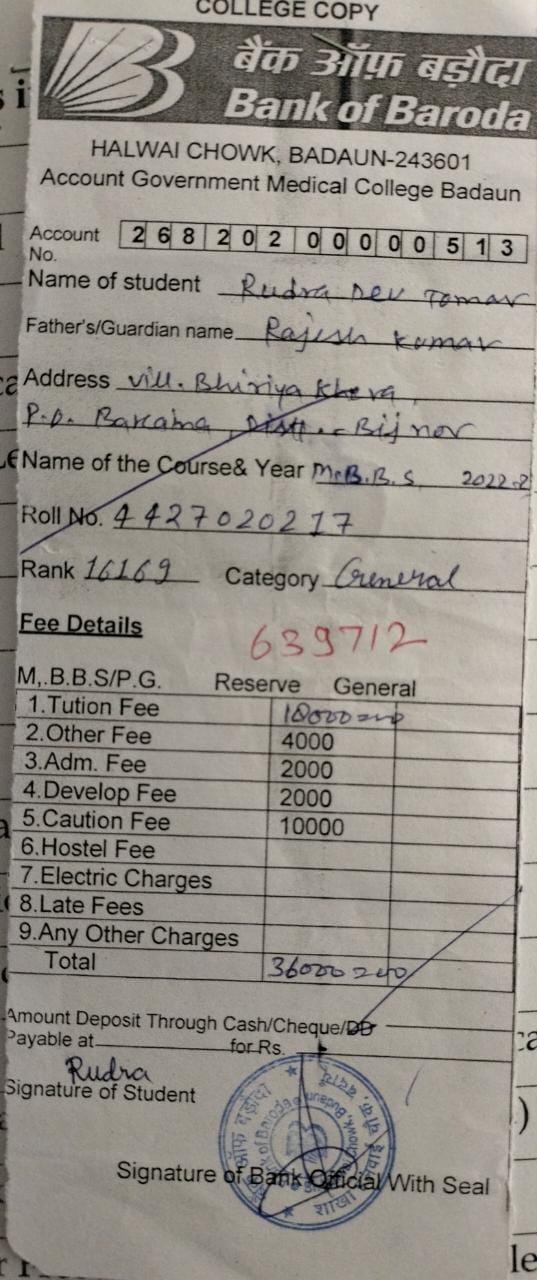 COLLEGE COPY
बैंक ऑफ़ बड़ौदा
Bank of Baroda
HALWAI CHOWK, BADAUN-243601
Account Government Medical College Badaun
Account No. 268202 00000513
Name of student Rudra Dev Tomar
Father's/Guardian name Rajesh Kumar
Address Vill. Bhiriya Khera,
P.O. Barcaina, Distt. - Bijnor
Name of the Course& Year M.B.B.S 2022-2
Roll No. 4427020217
Rank 16169 Category General
Fee Details
639712
M,.B.B.S/P.G. Reserve General
1.Tution Fee 18000
2.Other Fee 4000
3.Adm. Fee 2000
4.Develop Fee 2000
5.Caution Fee 10000
6.Hostel Fee
7.Electric Charges
8.Late Fees
9.Any Other Charges
Total 36000
Amount Deposit Through Cash/Cheque/DD
Payable at for Rs.
Rudra
Signature of Student
Signature of Bank Official With Seal
शाखा